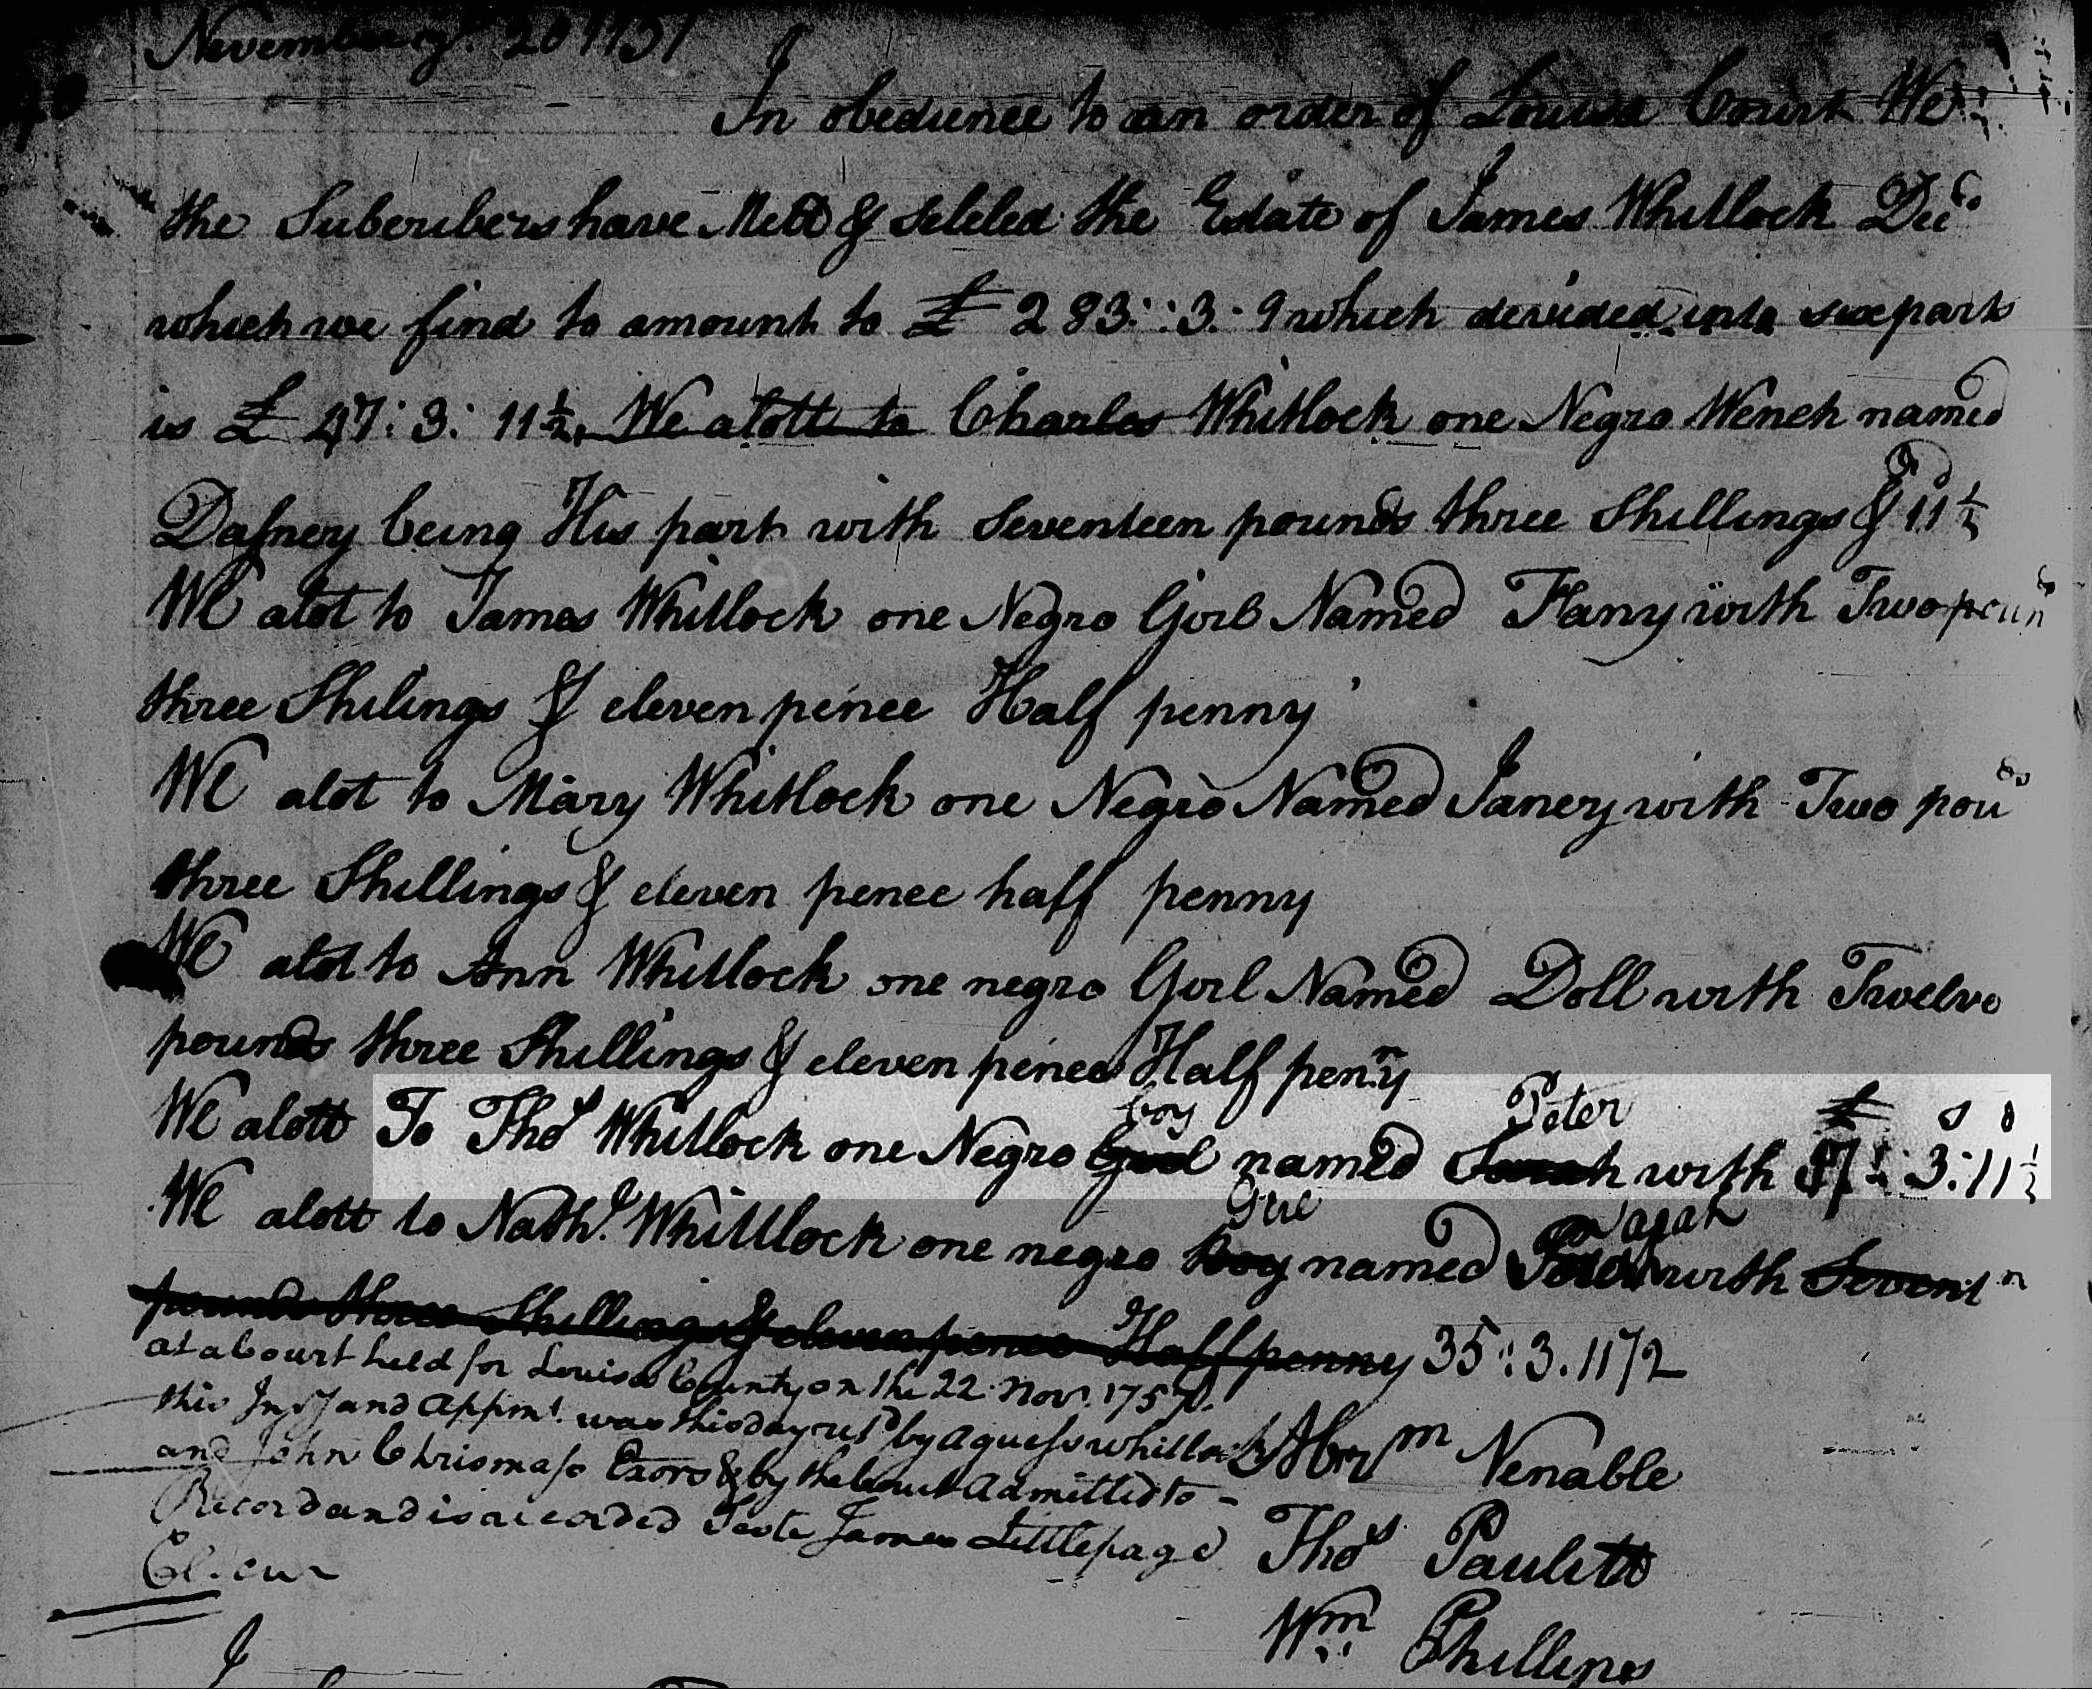 November ye. 20 1757
In obedience to an order of Louisa Court We
the Subcribers have Mett & seteled the Estate of James Whitlock Decd
which we find to amount to £ 283::3:9 which devided into six parts
is £ 47:3:11½. We alott to Charles Whitlock one Negro Wench named
Dafney being His part with Seventeen pounds three Shillings & 11½
We alot to James Whitlock one Negro Girl Named Fany with Two pounds
three Shilings & eleven pence Half penny
We alot to Mary Whitlock one Negro Named Janey with Two pouds
three Shillings & eleven pence half penny
We alot to Ann Whitlock one negro Girl Named Doll with Twelve
pounds three Shillings & eleven pence Half penny
boy Peter £ s d
We alott To Thos Whitlock one Negro Girl named Sarah with 37:3:11½
Girl Sarah
We alott to Nathl. Whitlock one negro boy named Peter with Seventn
pounds three Shillings & eleven pence Half penny 35:3.11 1/2
at a Court held for Louisa County on the 22 Nov. 1757.
this Invy and Appmt. was this day retd by Aguess Whitlock
and John Chrismass Exors & by the Court Admitted to
Record and is recorded Teste James Littlepage
Cl. cur
Abrm Venable
Thos Paulett
Wm Phillips